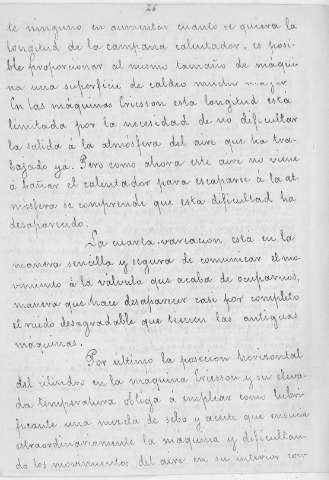 26
te ninguno en aumentar cuanto se quiera la
longitud de la campana calentador, es posi-
ble proporcionar al mismo tamaño de máqui-
na una superficie de caldeo mucho mayor
En las máquinas Ericsson esta longitud está
limitada por la necesidad de no dificultar
la salida á la atmósfera del aire que ha tra-
bajado ya. Pero como ahora este aire no viene
á bañar el calentador para escaparse á la at-
mósfera se comprende que esta dificultad ha
desaparecido.
La cuarta variacion está en la
manera sencilla y segura de comunicar el mo-
vimiento á la válvula que acaba de ocuparnos,
manera que hace desaparecer casi por completo
el ruido desagradable que tienen las antiguas
maquinas.
Por ultimo la posicion horizontal
del cilindro en la máquina Ericsson y su eleva-
da temperatura obliga á emplear como lubri-
ficante una mezcla de sebo y aceite que ensucia
extraordinariamente la maquina y dificultan-
do los movimientos del aire en su interior con-